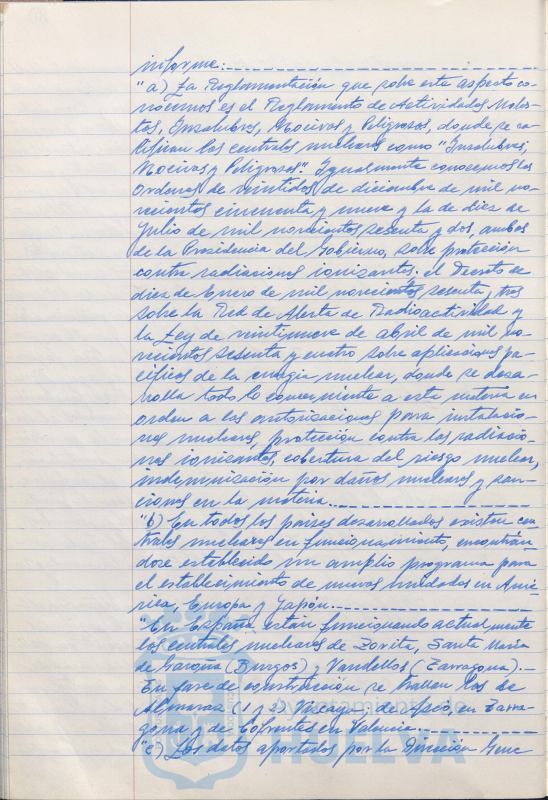 informe:
"a) La Reglamentación que sobre este aspecto co-
nocemos es el Reglamento de Actividades Moles-
tas, Insalubres, Nocivas y Peligrosas, donde se ca-
lifican las centrales nucleares como "Insalubres,
Nocivas y Peligrosas". Igualmente conocemos las
Ordenes de veintidos de diciembre de mil no-
vecientos cincuenta y nueve y la de diez de
Julio de mil novecientos sesenta y dos, ambas
de la Presidencia del Gobierno, sobre protección
contra radiaciones ionizantes; el Decreto de
diez de Enero de mil novecientos sesenta y tres
sobre la Red de Alerta de Radioactividad y
la Ley de veintinueve de abril de mil no-
vecientos sesenta y cuatro sobre aplicaciones pa-
cíficas de la energia nuclear, donde se desa-
rrolla todo lo concerniente a esta materia en
orden a las autorizaciones para instalacio-
nes nucleares, protección contra las radiacio-
nes ionizantes, cobertura del riesgo nuclear,
indemnización por daños nucleares y san-
ciones en la materia.
"b) En todos los paises desarrollados existen cen-
trales nucleares en funcionamiento, encontrán-
dose establecido un amplio programa para
el establecimiento de nuevas unidades en Amé-
rica, Europa y Japón.
"En España están funcionando actualmente
las centrales nucleares de Zorita, Santa María
de Garoña (Burgos) y Vandellos (Tarragona).
En fase de construcción se hallan las de
Almaraz (1 y 2) de Ascó, en Tarra-
gona y de Cofrentes en Valencia.
"c) Los datos aportados por la Dirección Gene
Ayuntamiento de
HUELVA